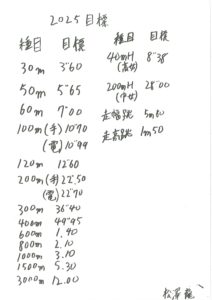 2025 目標
種目 目標
30m 3"60
50m 5"65
60m 7"00
100m (手) 10"70
(電) 10"99
120m 12"60
200m (手) 22"50
(電) 22"70
300m 36"40
400m 49"95
600m 1.40
800m 2.10
1000m 3.10
1500m 5.30
3000m 12.00
種目 目標
40mH 8"38
200mH 28"00
走幅跳 5m60
走高跳 1m50